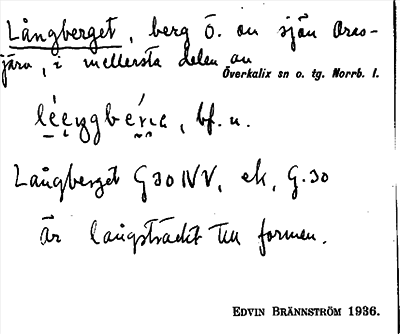 Långberget, berg Ö. om sjön Oras-
järv, i mellersta delen av
Överkalix sn o. tg. Norrb. l.
bf. n.
Långberget G30 NV, ek, G.30
är långsträckt till formen.
EDVIN BRÄNNSTRÖM 1936.